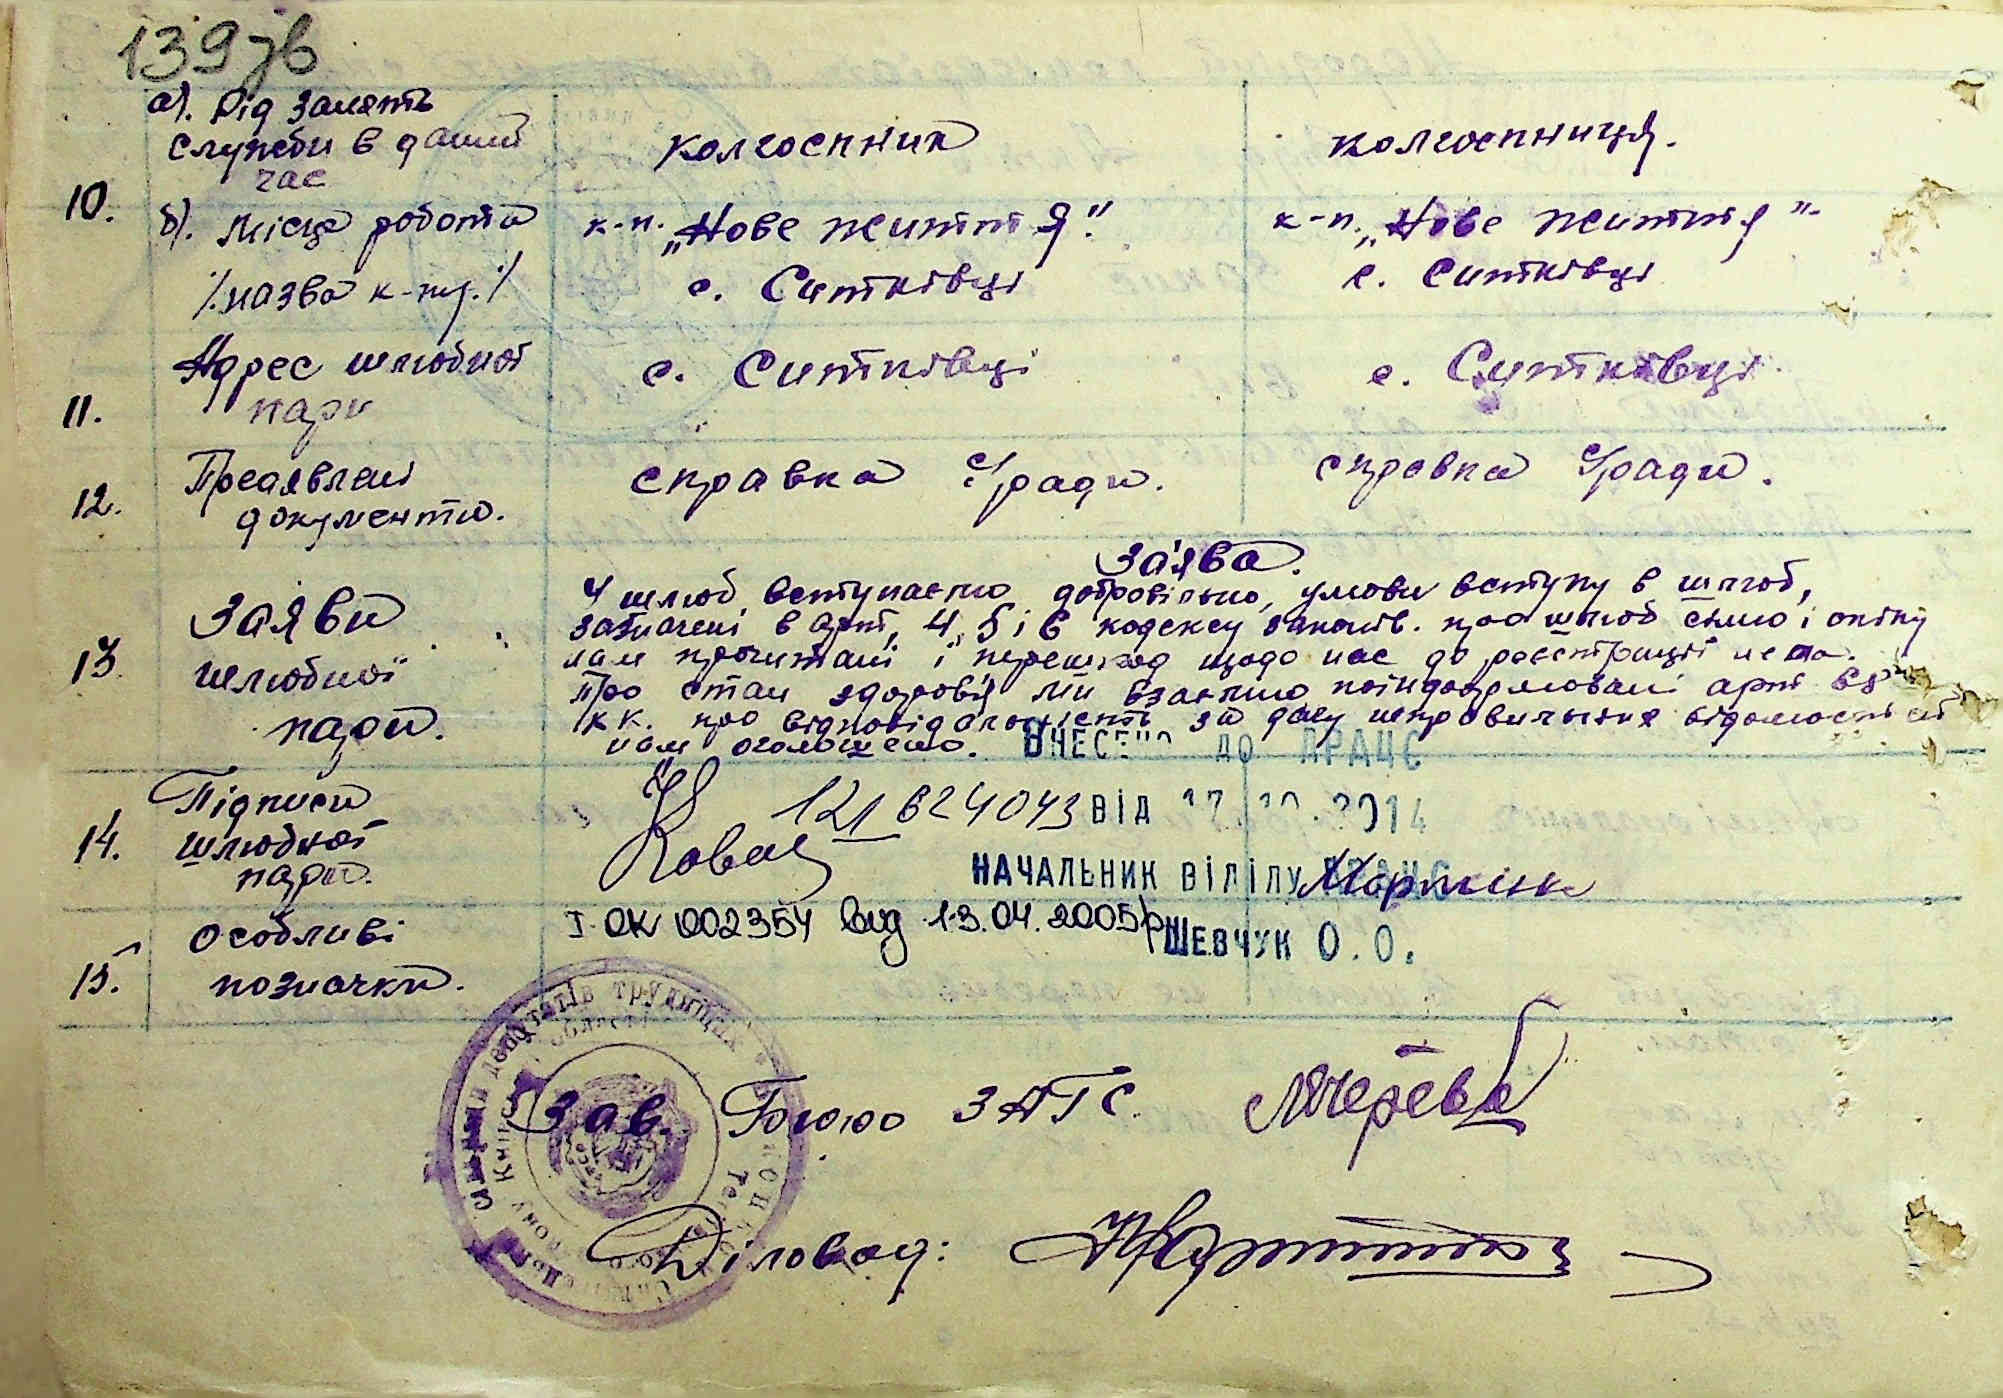 139 зв
а). Рід занять
служби в даний
час
колгоспник
колгоспниця.
10.
б). Місце роботи
к-п. „Нове життя".
к-п. „Нове життя"
/назва к-пу./
с. Ситківці
с. Ситківці
11.
Адрес шлюбної
пари
с. Ситківці
с. Ситківці
12.
Предявлені
документи.
справка С/ради.
справка С/ради.
13.
Заяви
шлюбної
пари.
Заява.
У шлюб вступаємо добровільно, умови вступу в шлюб,
зазначені в арт, 4, 5 і 6 кодексу законів. про шлюб сімю і опіку
нам прочитані і перешкод щодо нас до реєстрації нема.
Про стан здоровя ми взаємно поінформовані арт 68
КК. про відповідальність за дачу неправильних відомостей
нам оголошено.
ВНЕСЕНО ДО ДРАЦС
121 624043 ВІД 17.10.2014
14.
Підписи
шлюбної
пари.
Ковал
НАЧАЛЬНИК ВІДІЛУ ДРАЦС
15.
Особливі
позначки.
І-ОК 002354 від 13.04.2005р
ШЕВЧУК О.О.
Зав. Бюро ЗАГС.
Діловод:
депутатів трудящих